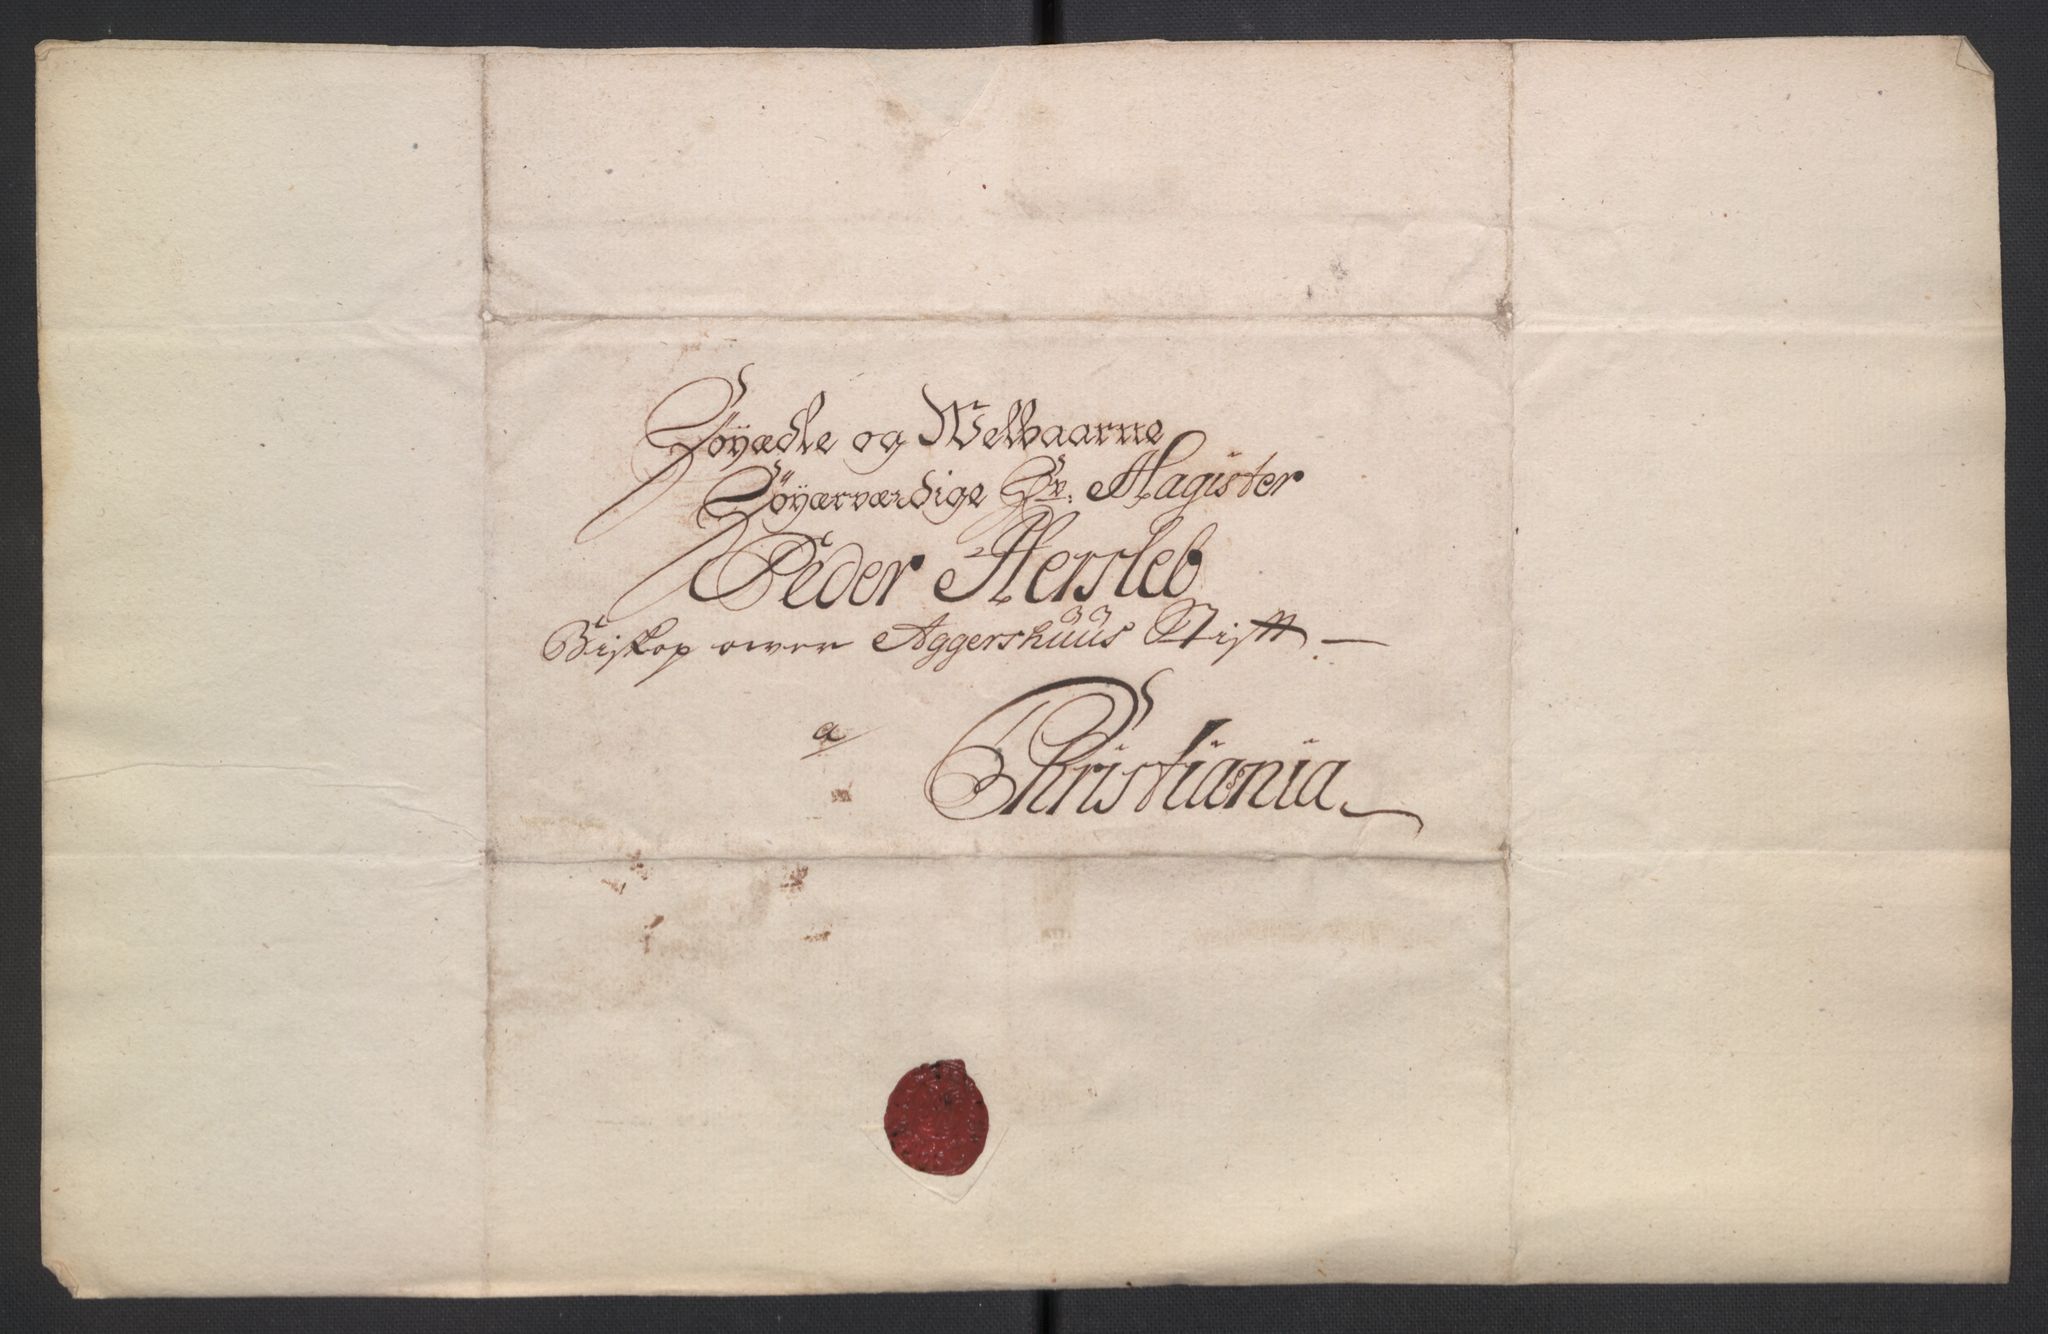 Høyædle og Welbaarne
Høyærværdige Hr. Magister
Peder Hersleb
Biskop over Aggershuus Stift
a
Christiania